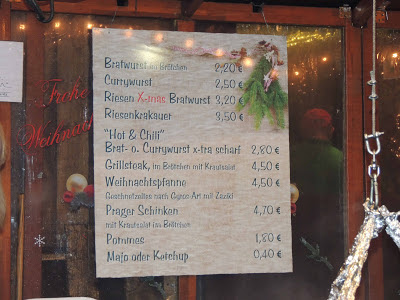 Frohe
Weihnach
Bratwurst im Brötchen 2,20 €
Currywurst 2,50 €
Riesen X-mas Bratwurst 3,20 €
Riesenkrakauer 3,50 €
"Hot & Chili"
Brat- o. Currywurst x-tra scharf 2,80 €
Grillsteak, im Brötchen mit Krautsalat 4,50 €
Weihnachtspfanne 4,50 €
Geschnetzelles nach Gyros-Art mit Zaziki
Prager Schinken 4,70 €
mit Krautsalat im Brötchen
Pommes 1,80 €
Majo oder Ketchup 0,40 €